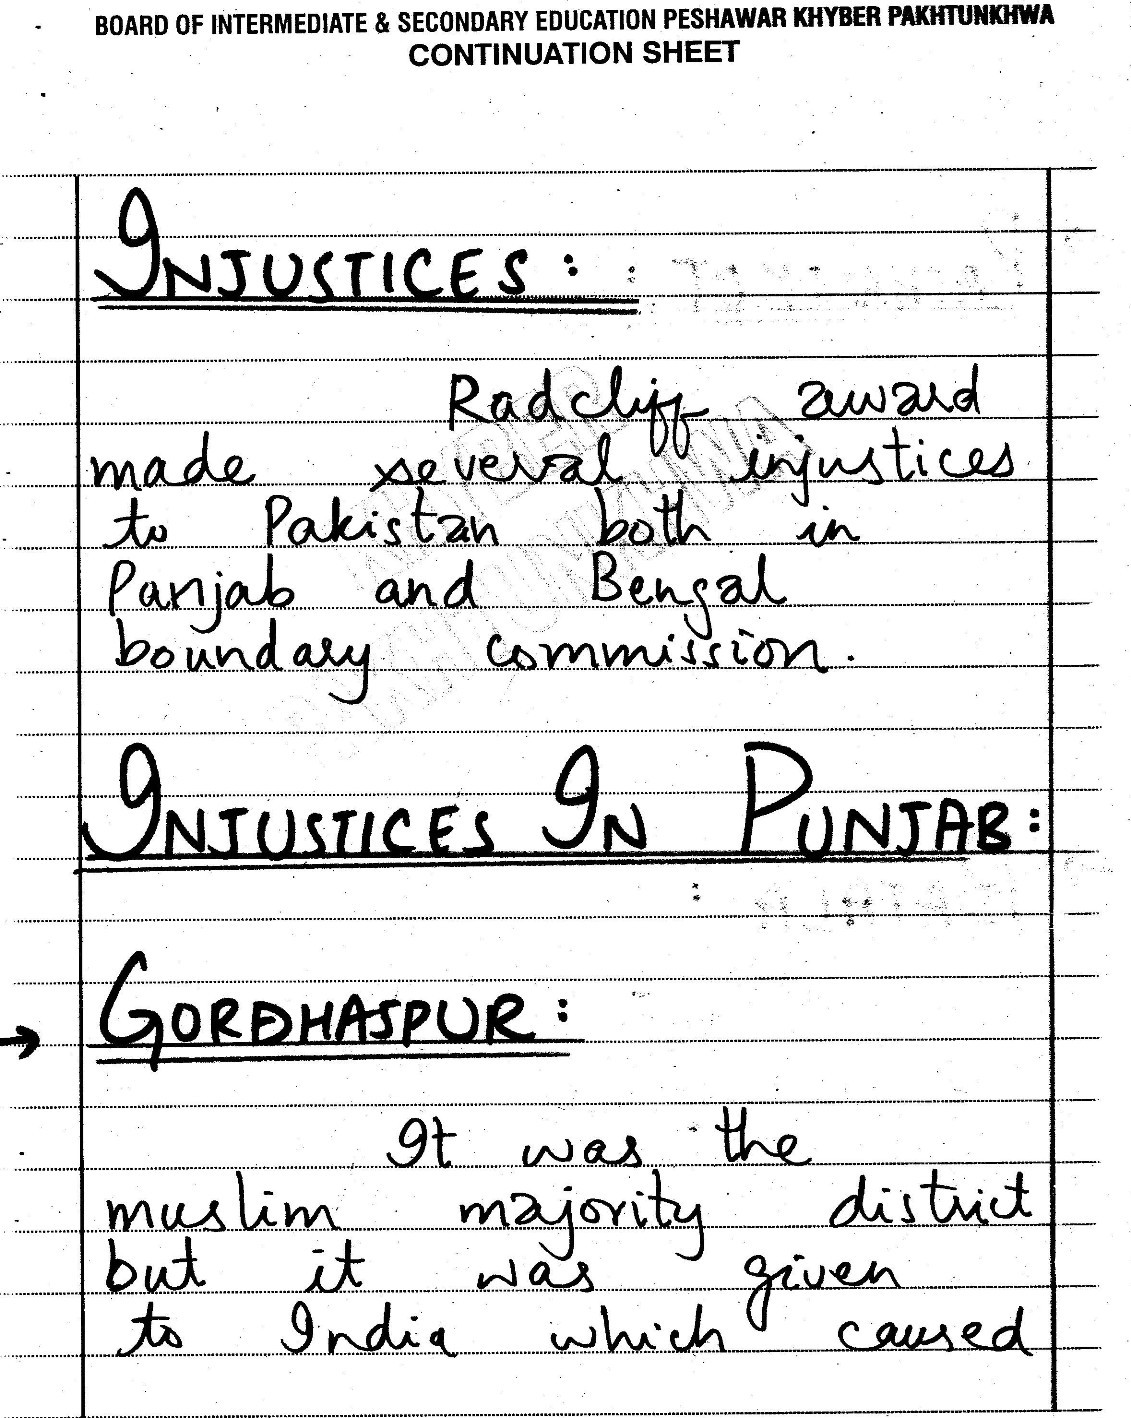 BOARD OF INTERMEDIATE & SECONDARY EDUCATION PESHAWAR KHYBER PAKHTUNKHWA
CONTINUATION SHEET
INJUSTICES:
Radcliff award
made several injustices
to Pakistan both in
Panjab and Bengal
boundary commission.
INJUSTICES IN PUNJAB:
→ GORDHASPUR:
It was the
muslim majority district
but it was given
to India which caused